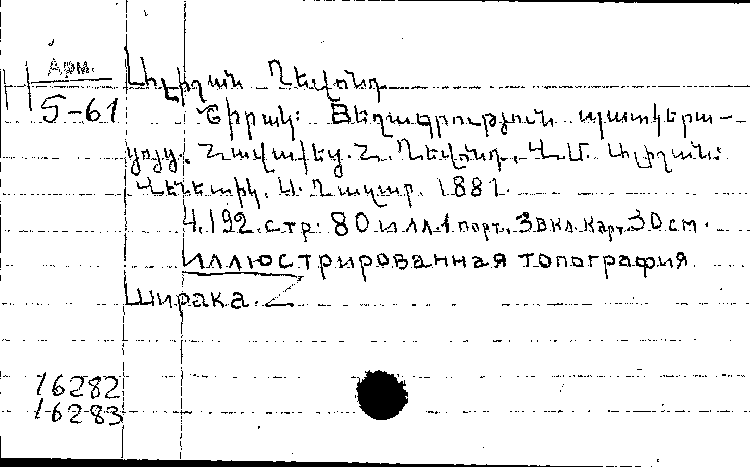 Арм.
5-61
Ալիշան Ղեվոնդ
Շիրակ: Տեղագրություն պատկերա-
ցոյց. Հավաքեց. Հ. Ղեվոնդ. Վ.Մ. Ալիշան:
Վենետիկ, Ս. Ղազար. 1881.
4, 192. стр. 80 илл. 1 порт., 3 вкл. карт. 30 см.
иллюстрированная топография
Ширака.
16282
16283